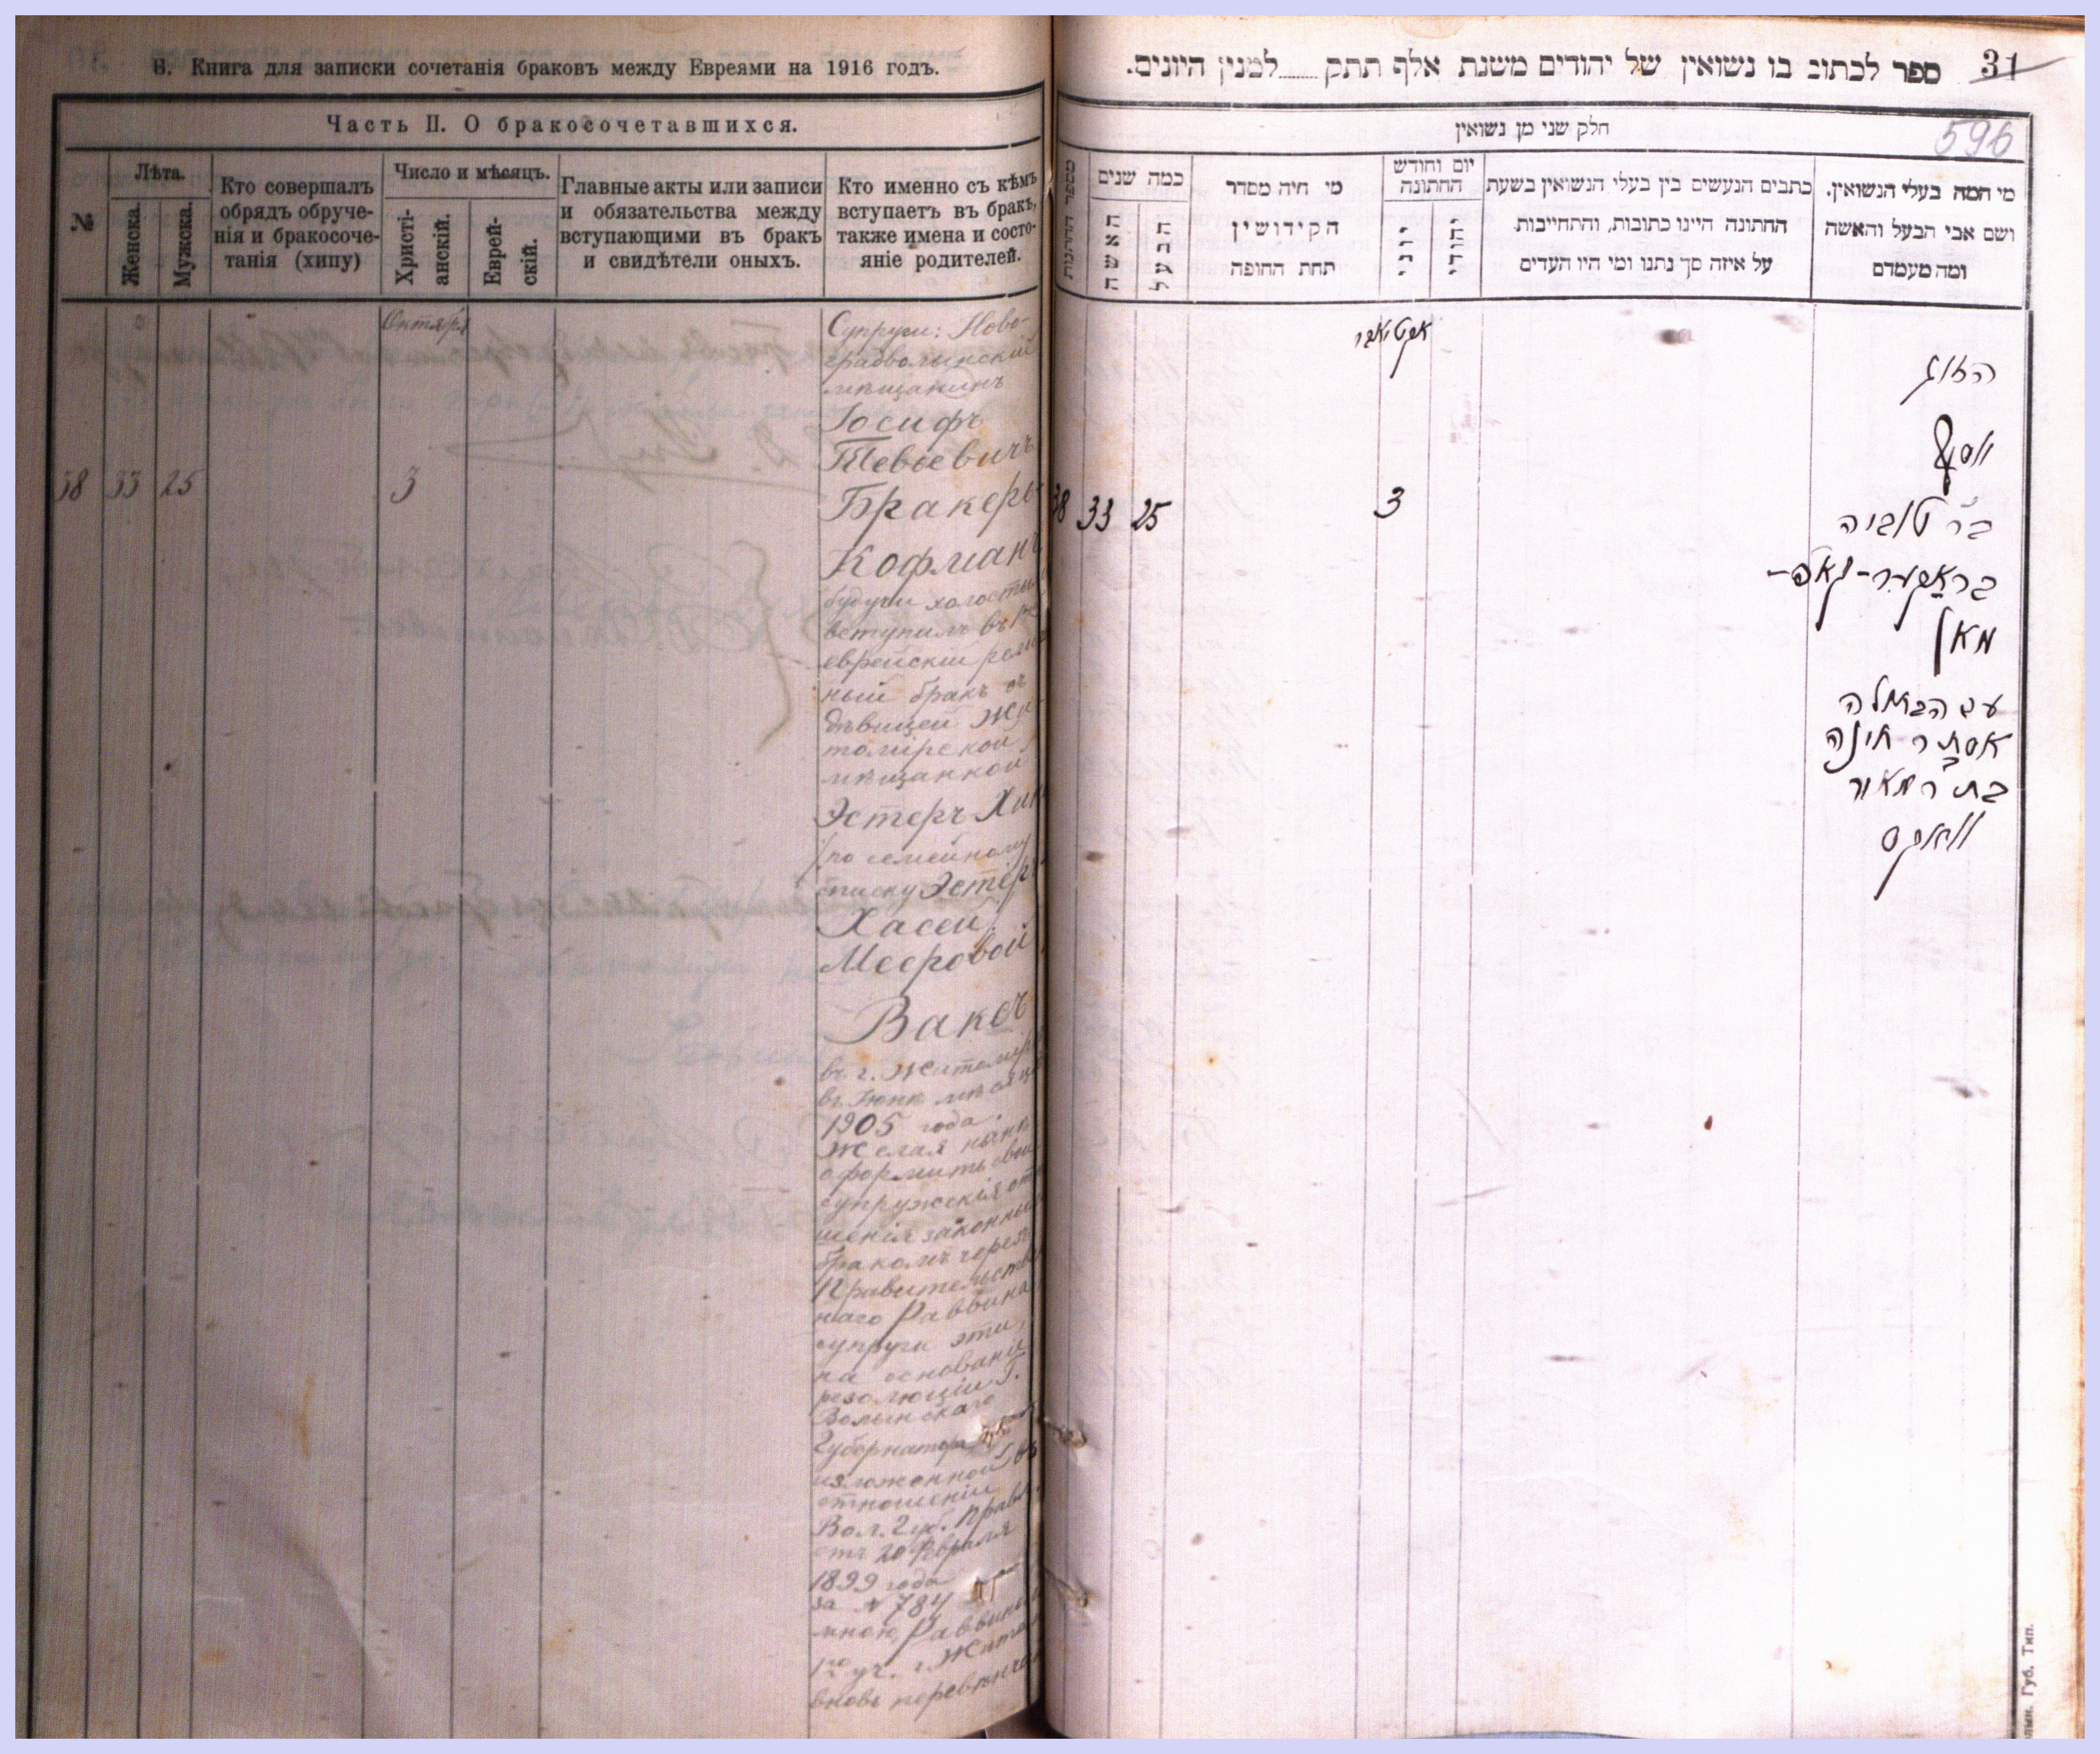 В. Книга для записки сочетанія браковъ между Евреями на 1916 годъ.
Часть II. О бракосочетавшихся.
№
Лѣта.
Женска.
Мужска.
Кто совершалъ
обрядъ обруче-
нія и бракосоче-
танія (хипу)
Число и мѣсяцъ.
Христі-
анскій.
Еврей-
скій.
Главные акты или записи
и обязательства между
вступающими въ бракъ
и свидѣтели оныхъ.
Кто именно съ кѣмъ
вступаетъ въ бракъ,
также имена и состо-
яніе родителей.
Октября
38 33 25 3
Супруги: Ново-
градволынскій
мѣщанинъ
Іосифъ
Тевьевичъ
Бракеръ-
Кофманъ
будучи холостымъ
вступилъ въ
еврейскій
ный бракъ съ
дѣвицей Жи-
томірской
мѣщанкой
Эстеръ
(по семейному
списку Эстеръ
Хасей)
Мееровой
Ваксъ
въ г. Житомирѣ
въ Іюнѣ мѣсяцѣ
1905 года.
Желая нынѣ
оформить свои
супружескія отно-
шенія законнымъ
бракомъ черезъ
Правительствен-
наго Раввина
супруги эти,
на основаніи
резолюціи Г.
Волынскаго
Губернатора
изложенной въ
отношеніи
Вол. Губ. Правл.
отъ 20 Февраля
1899 года
за № 784
мною, Раввиномъ
1го уч. г. Житом.
вновь перевѣнчаны
31
ספר לכתוב בו נשואין של יהודים משנת אלף תתק ..... למנין היונים.
596
חלק שני מן נשואין
מספר החתונות
כמה שנים
האשה
הבעל
מי היה מסדר
הקידושין
תחת החופה
יום וחודש
החתונה
יוני
יהודי
כתבים הנעשים בין בעלי הנשואין בשעת
החתונה היינו כתובות, והתחייבות
על איזה סך נתנו ומי היו העדים
מי המה בעלי הנשואין.
ושם אבי הבעל והאשה
ומה מעמדם
אקטיאבר
38 33 25 3
הזוג
יוסף
בר טוביה
בראקער-קאפ-
מאן
עם הבתולה
אסתר חינה
בת ר מאור
וואקס
Губ. Тип.